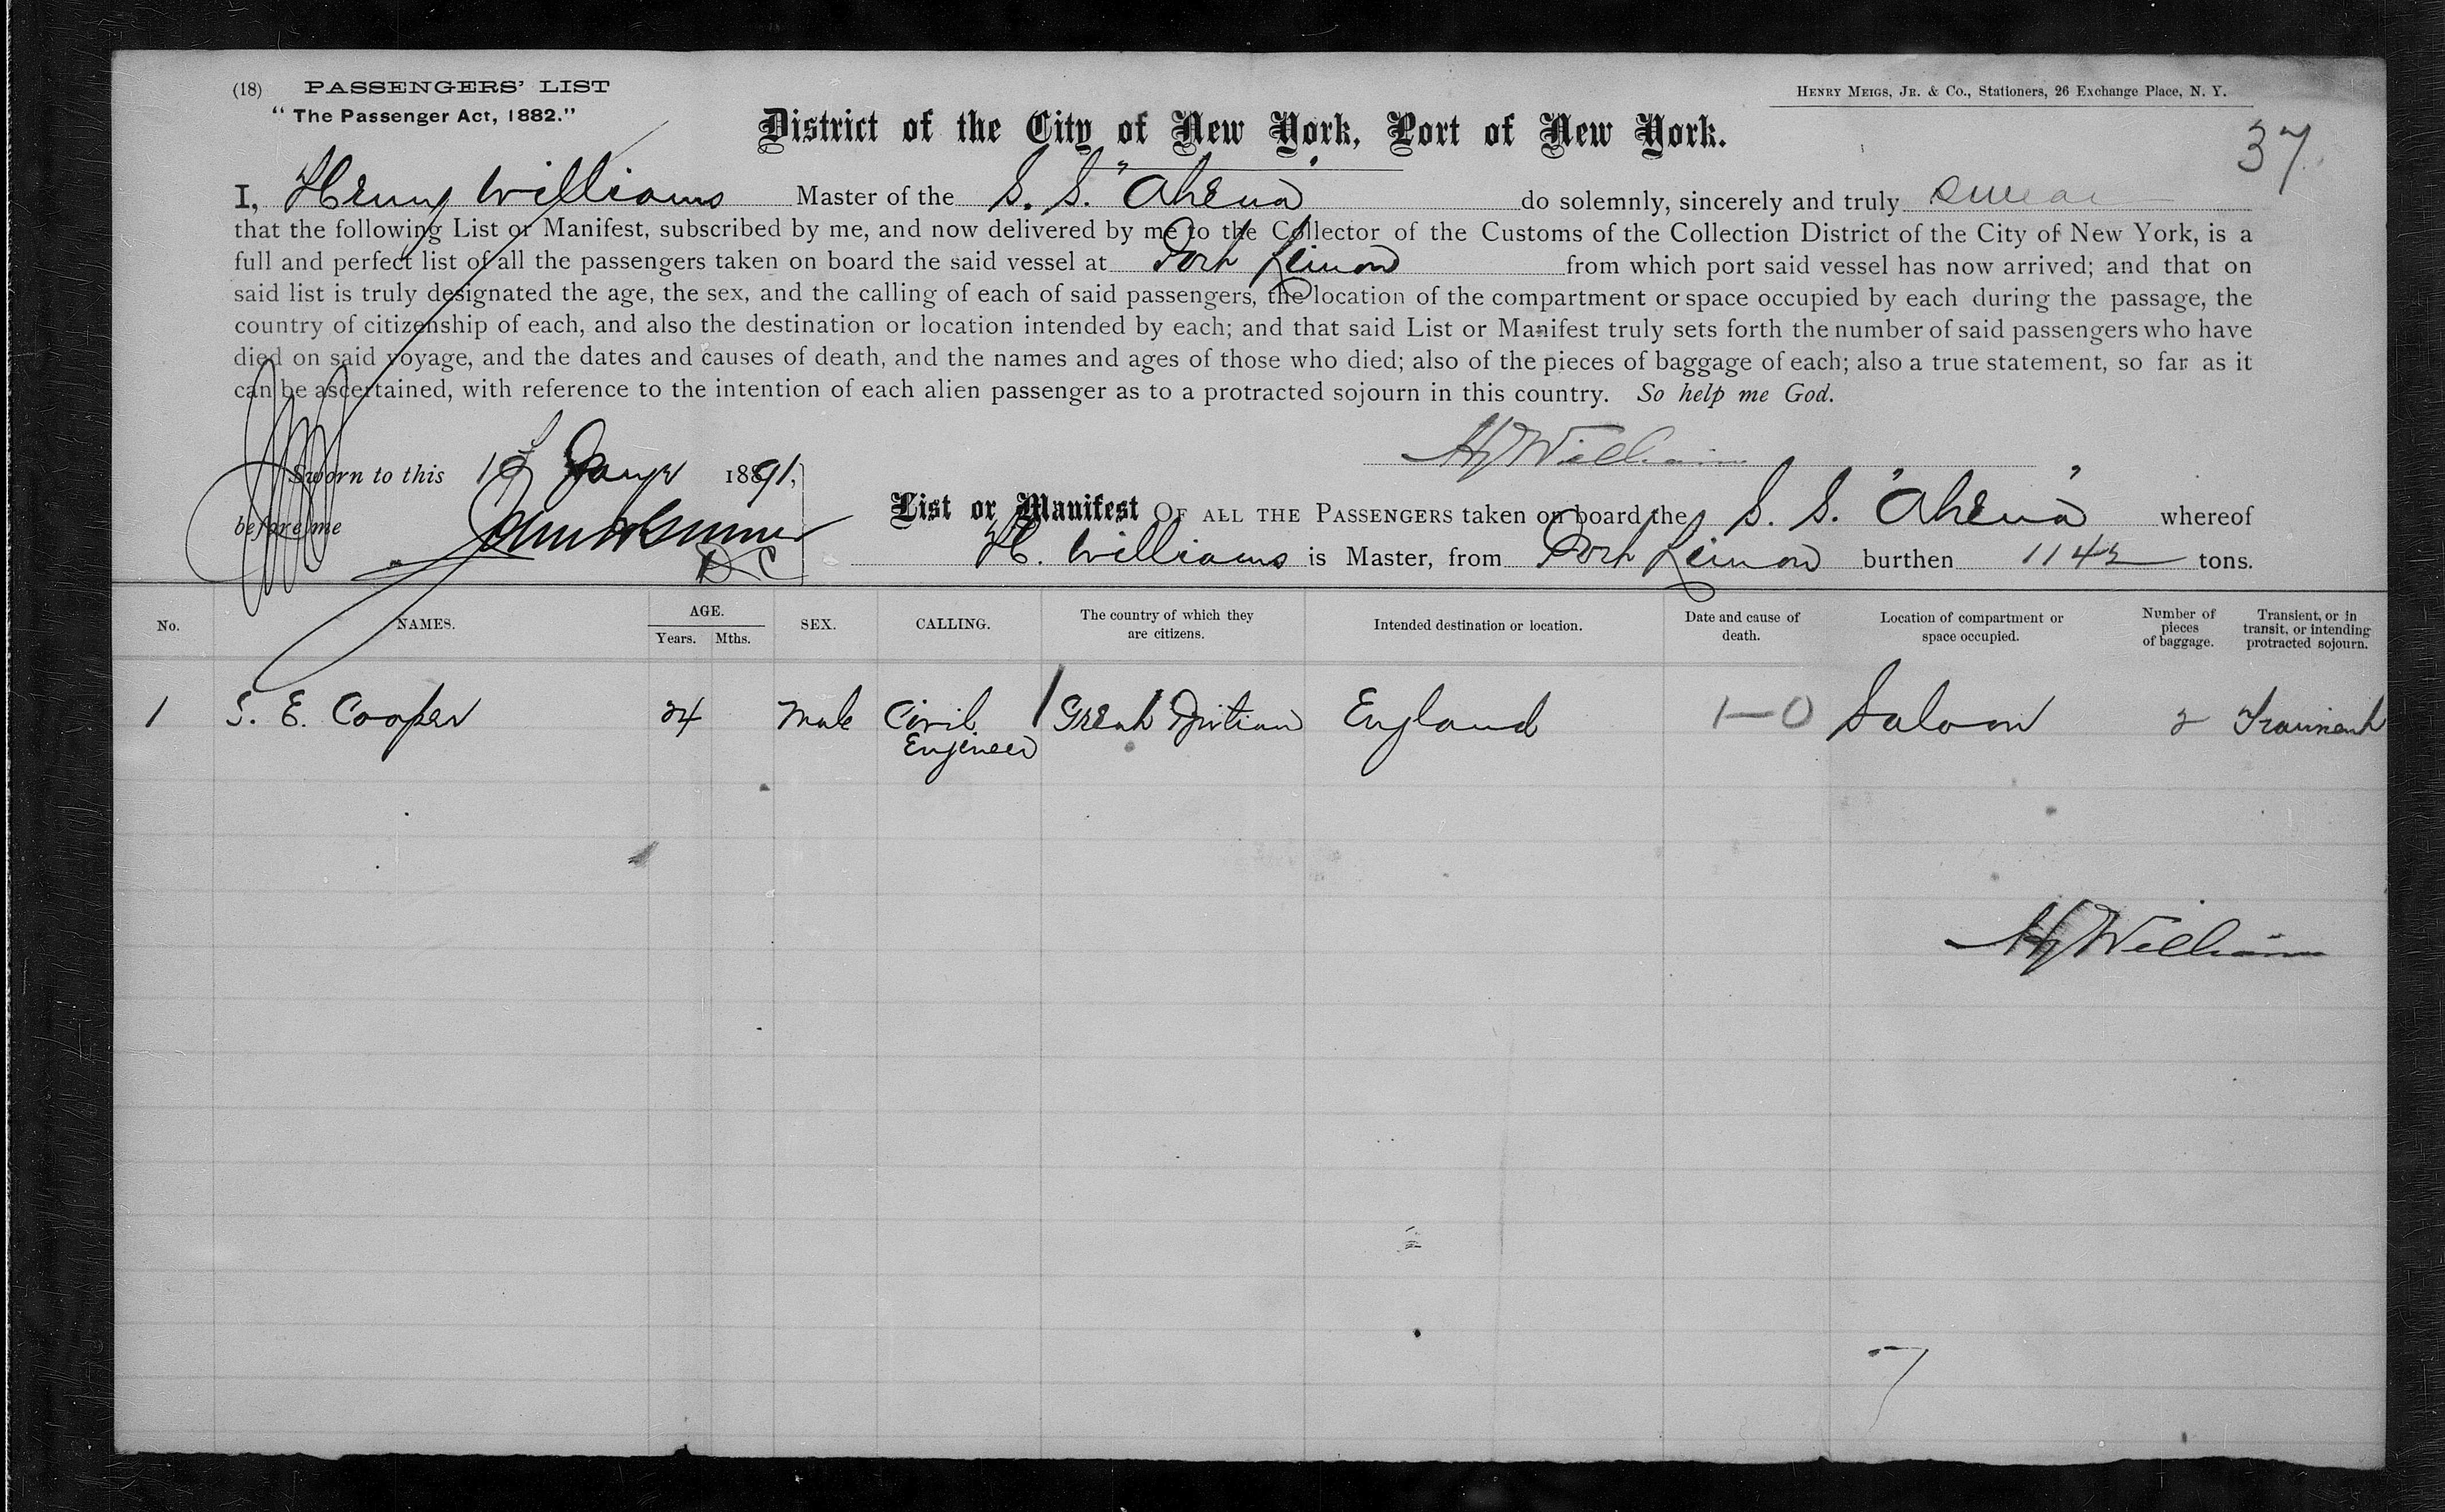 (18) PASSENGERS' LIST
"The Passenger Act, 1882."
HENRY MEIGS, JR. & CO., Stationers, 26 Exchange Place, N. Y.
District of the City of New York, Port of New York.
37
I, Henry Williams Master of the S. S. "Ahena" do solemnly, sincerely and truly swear
that the following List or Manifest, subscribed by me, and now delivered by me to the Collector of the Customs of the Collection District of the City of New York, is a
full and perfect list of all the passengers taken on board the said vessel at Port Limon from which port said vessel has now arrived; and that on
said list is truly designated the age, the sex, and the calling of each of said passengers, the location of the compartment or space occupied by each during the passage, the
country of citizenship of each, and also the destination or location intended by each; and that said List or Manifest truly sets forth the number of said passengers who have
died on said voyage, and the dates and causes of death, and the names and ages of those who died; also of the pieces of baggage of each; also a true statement, so far as it
can be ascertained, with reference to the intention of each alien passenger as to a protracted sojourn in this country. So help me God.
Hy Williams
Sworn to this Jany 1891,
before me
List or Manifest OF ALL THE PASSENGERS taken on board the S. S. "Ahena" whereof
H. Williams is Master, from Port Limon burthen 1142 tons.
No. NAMES. AGE. Years. Mths. SEX. CALLING. The country of which they are citizens. Intended destination or location. Date and cause of death. Location of compartment or space occupied. Number of pieces of baggage. Transient, or in transit, or intending protracted sojourn.
1 S. E. Cooper 24 Male Civil Engineer Great Britian England 1-0 Saloon 2 Transient
Hy Williams
7